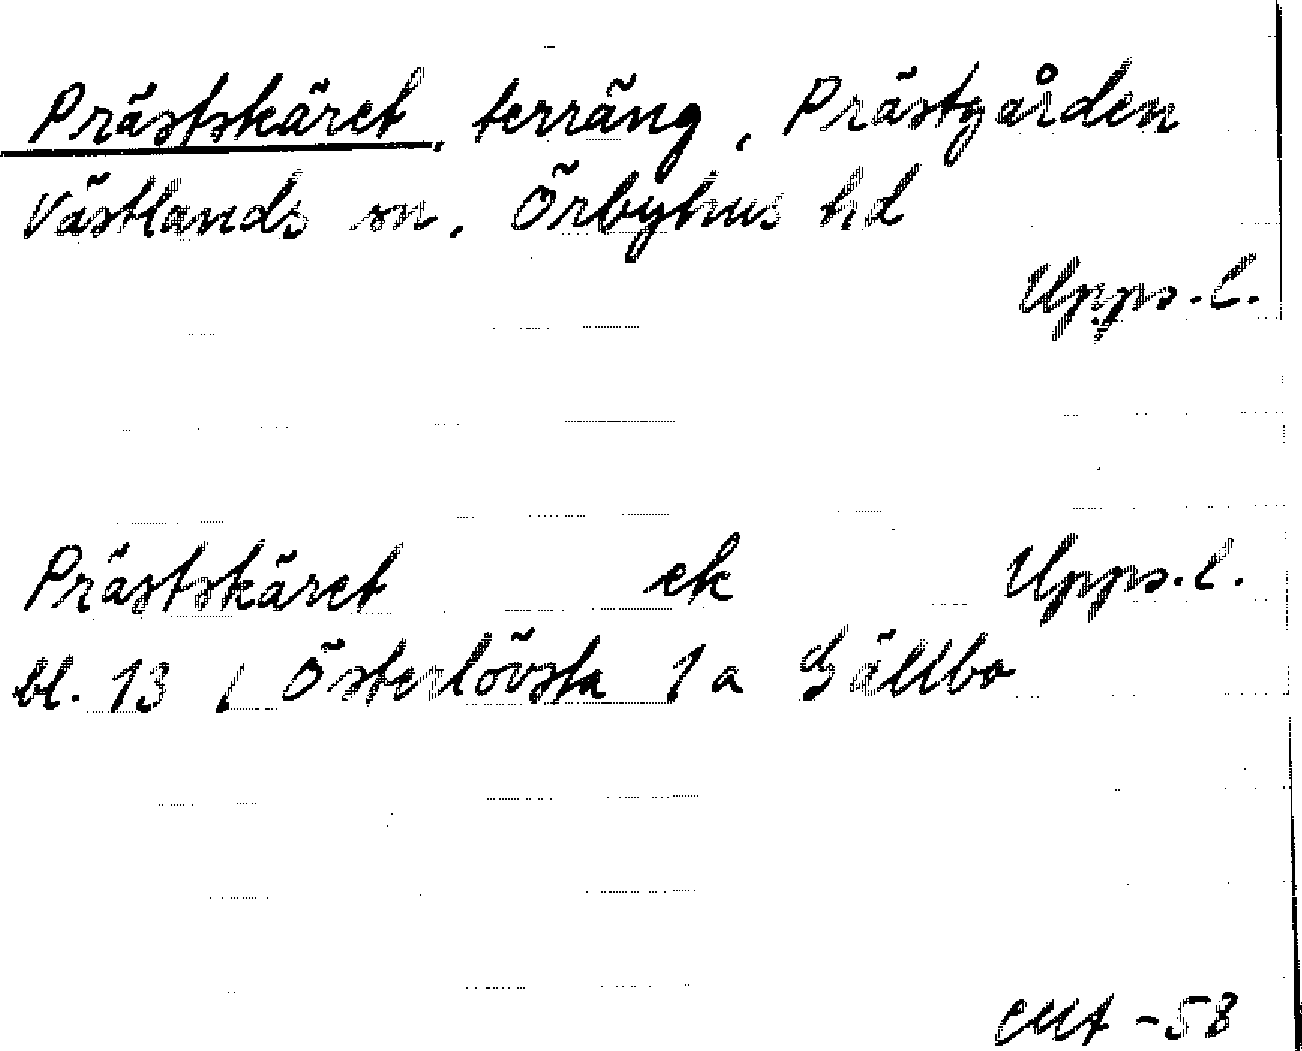 Prästskäret, terräng, Prästgården
Västlands sn, Örbyhus hd
Upps. l.
Prästskäret ek Upps. l.
bl. 13 i Österlövsta 1a Gällbo
-58